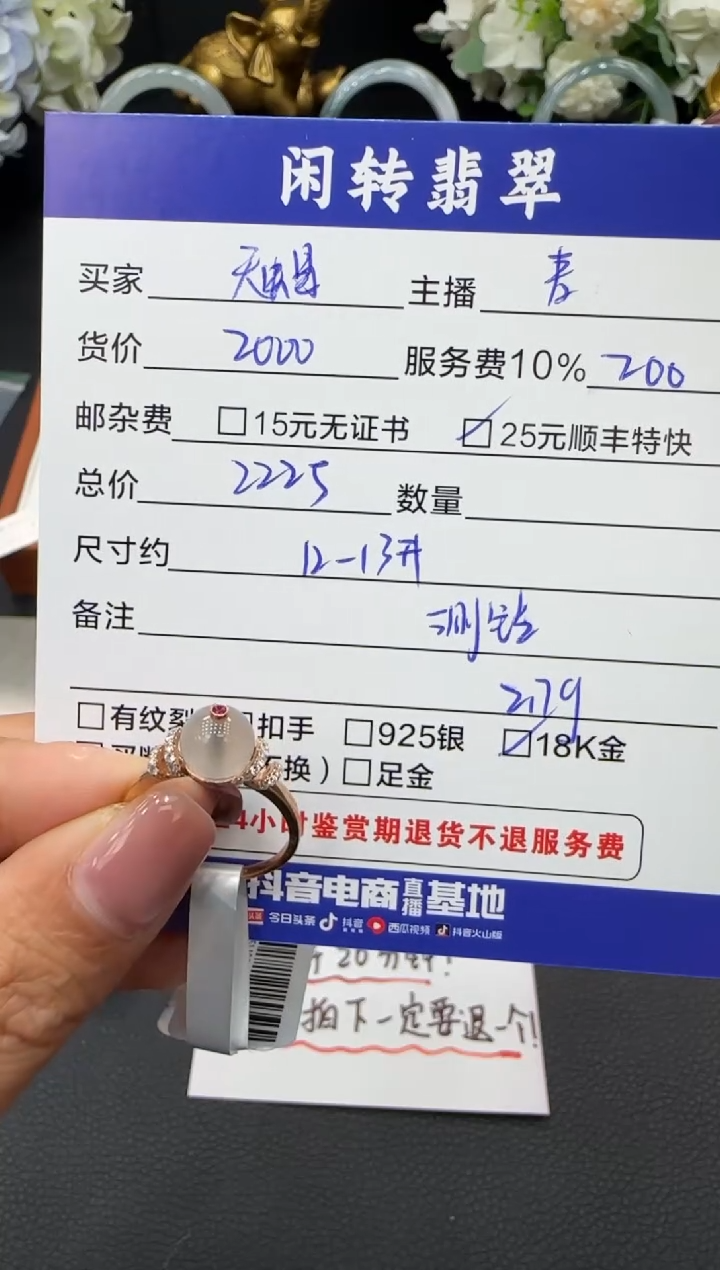 闲转翡翠
买家 主播
货价 2000 服务费10% 200
邮杂费 15元无证书 25元顺丰特快
总价 2225 数量
尺寸约 12-13开
备注 测钻
2.179
有纹裂 扣手 925银 18K金
换）足金
24小时鉴赏期退货不退服务费
抖音电商直播基地
头条 今日头条 抖音 西瓜视频 抖音火山版
20分钟!
拍下一定要退一个!